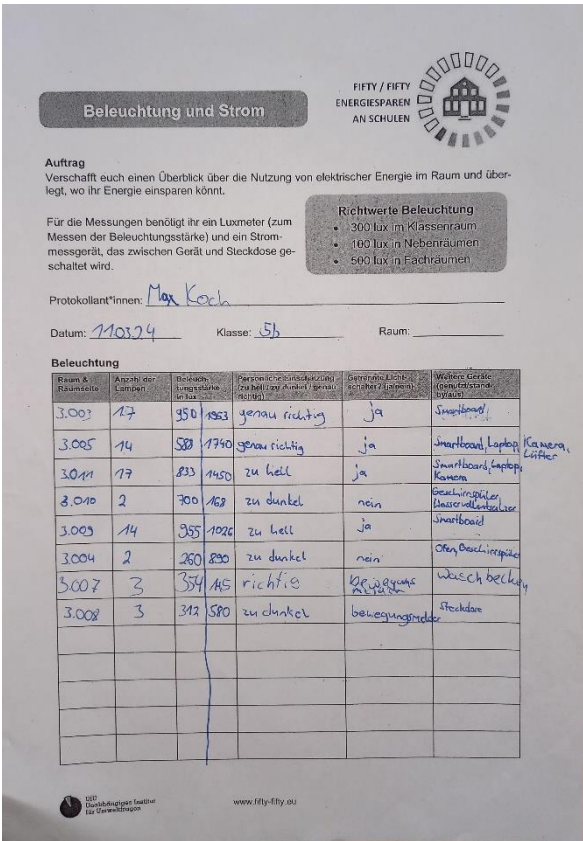 FIFTY / FIFTY
ENERGIESPAREN
AN SCHULEN
Beleuchtung und Strom
Auftrag
Verschafft euch einen Überblick über die Nutzung von elektrischer Energie im Raum und über-
legt, wo ihr Energie einsparen könnt.
Für die Messungen benötigt ihr ein Luxmeter (zum
Messen der Beleuchtungsstärke) und ein Strom-
messgerät, das zwischen Gerät und Steckdose ge-
schaltet wird.
Richtwerte Beleuchtung
• 300 lux im Klassenraum
• 100 lux in Nebenräumen
• 500 lux in Fachräumen
Protokollant*innen: Max Koch
Datum: 110324 Klasse: 5b Raum:
Beleuchtung
Raum & Raumseite Anzahl der Lampen Beleuch-tungsstärke in lux Persönliche Einschätzung (zu hell / zu dunkel / genau richtig) Getrennte Licht-schalter? (ja/nein) Weitere Geräte (genutzt/stand-by/aus)
3.003 17 950 1963 genau richtig ja Smartboard
3.005 14 580 1740 genau richtig ja Smartboard, Laptop, Kamera, Lüfter
3.011 17 833 1450 zu hell ja Smartboard, Laptop, Kamera
3.010 2 700 168 zu dunkel nein Geschirrspüler
3.009 14 955 1026 zu hell ja Smartboard
3.004 2 260 890 zu dunkel nein Ofen, Geschirrspüler
3.007 3 354 145 richtig bewegungs Waschbecken
3.008 3 312 580 zu dunkel bewegungsmelder Steckdose
UfU
Unabhängiges Institut
für Umweltfragen
www.fifty-fifty.eu